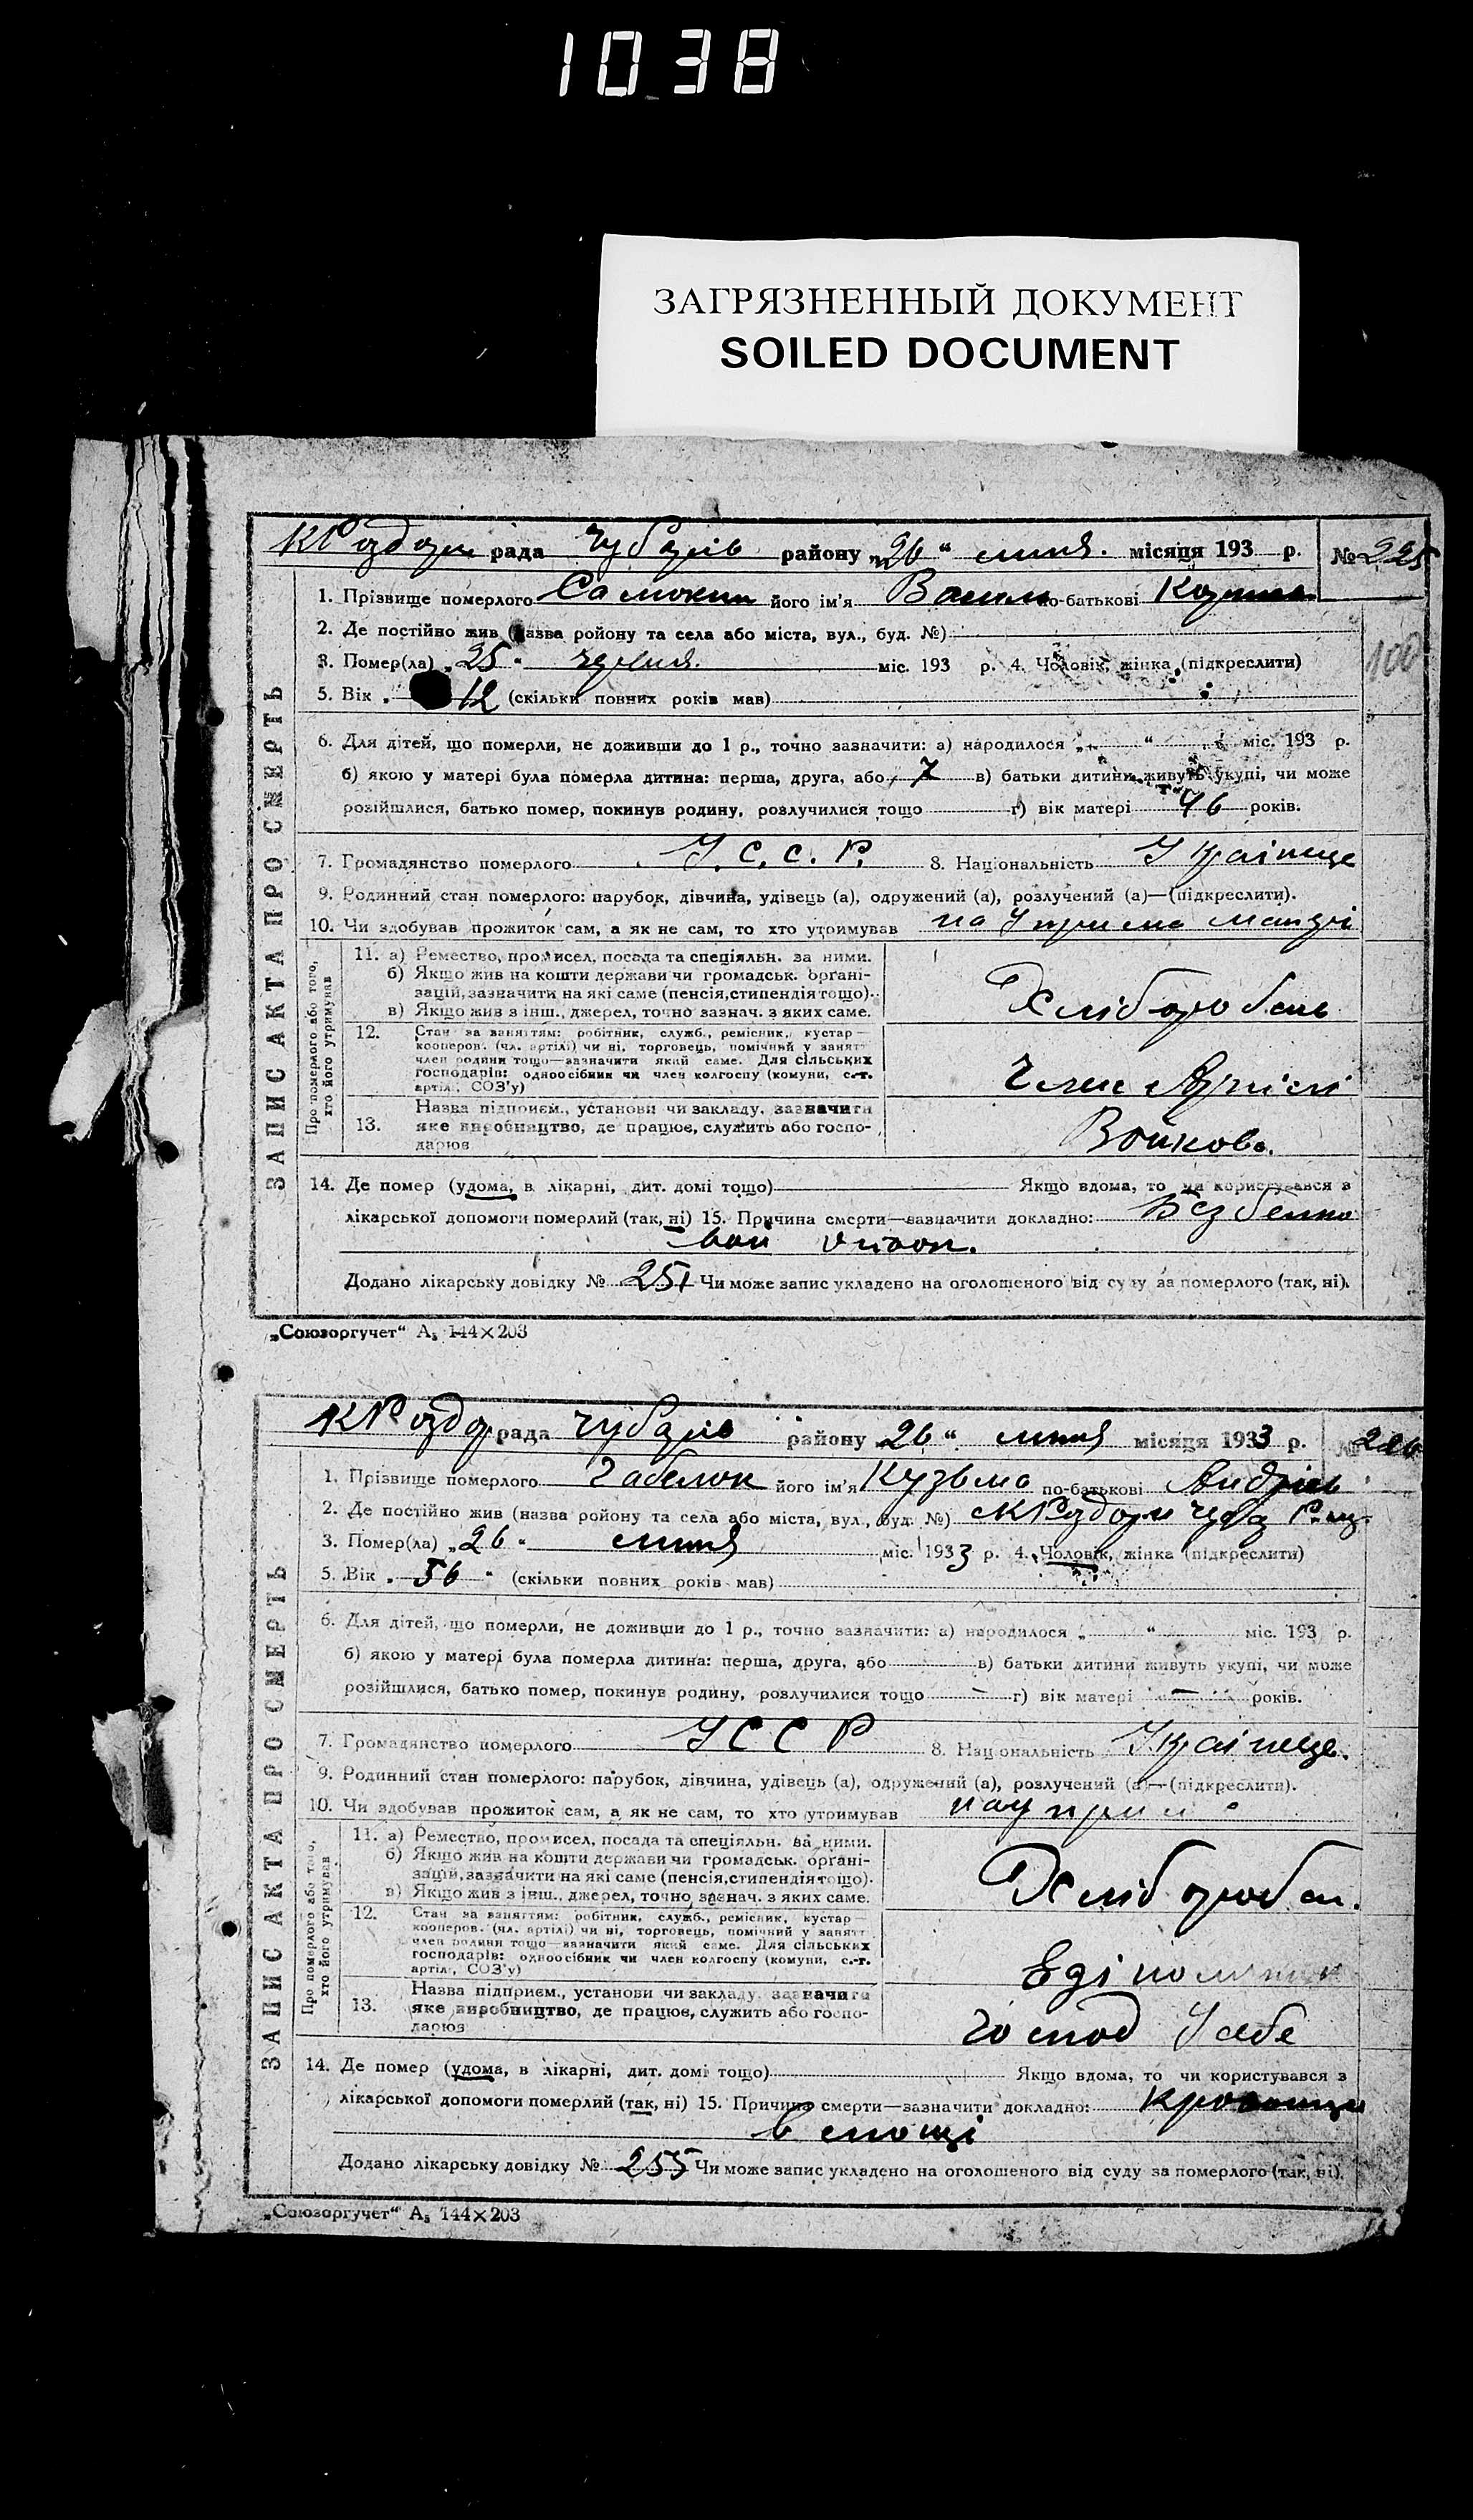 1038
ЗАГРЯЗНЕННЫЙ ДОКУМЕНТ
SOILED DOCUMENT
рада Чубарів району „26“ липня. місяця 193 р. № 225
ЗАПИС АКТА ПРО СМЕРТЬ
1. Прізвище померлого його ім'я Василь по-батькові
2. Де постійно жив (назва ройону та села або міста, вул., буд. №)
3. Помер(ла) „25“ міс. 193 р. 4. Чоловік, жінка (підкреслити)
5. Вік „ 12 (скільки повних років мав)
6. Для дітей, що померли, не доживши до 1 р., точно зазначити: а) народилося „ “ міс. 193 р.
б) якою у матері була померла дитина: перша, друга, або 7 в) батьки дитини живуть укупі, чи може
розійшлися, батько помер, покинув родину, розлучилися тощо г) вік матері 46 років.
7. Громадянство померлого У.С.С.Р. 8. Національність Українце
9. Родинний стан померлого: парубок, дівчина, удівець (а), одружений (а), розлучений (а)—(підкреслити).
10. Чи здобував прожиток сам, а як не сам, то хто утримував
Про померлого або того, хто його утримував
11. а) Ремество, промисел, посада та спеціяльн. за ними.
б) Якщо жив на кошти держави чи громадськ. органі-
зацій, зазначити на які саме (пенсія, стипендія тощо).
в) Якщо жив з інш., джерел, точно зазнач. з яких саме.
Хлібороб
12. Стан за заняттям: робітник, служб., ремісник, кустар—
кооперов. (чл. артілі) чи ні, торговець, помічний у занятт
член родини тощо—зазначити який саме. Для сільських
господарів: одноосібник чи член колгоспу (комуни, с.-г.
артіл., СОЗ'у)
Член Артілі
13. Назва підприєм., установи чи закладу, зазначити
яке виробництво, де працює, служить або госпо-
дарює
Войкова.
14. Де помер (удома, в лікарні, дит. домі тощо) Якщо вдома, то чи користувався з
лікарської допомоги померлий (так, ні) 15. Причина смерти—зазначити докладно:
Додано лікарську довідку № 251 Чи може запис укладено на оголошеного від суду за померлого (так, ні).
„Союзоргучет“ А₅ 144×203
100
рада Чубарів району 26“ липня місяця 1933 р. № 226
ЗАПИС АКТА ПРО СМЕРТЬ
1. Прізвище померлого його ім'я Кузьма по-батькові Андрієв
2. Де постійно жив (назва ройону та села або міста, вул., буд. №)
3. Помер(ла) „26“ липня міс. 1933 р. 4. Чоловік, жінка (підкреслити)
5. Вік „56“ (скільки повних років мав)
6. Для дітей, що померли, не доживши до 1 р., точно зазначити: а) народилося „ “ міс. 193 р.
б) якою у матері була померла дитина: перша, друга, або в) батьки дитини живуть укупі, чи може
розійшлися, батько помер, покинув родину, розлучилися тощо — г) вік матері — років.
7. Громадянство померлого УССР 8. Національність Українце.
9. Родинний стан померлого: парубок, дівчина, удівець (а), одружений (а), розлучений (а)—(підкреслити).
10. Чи здобував прожиток сам, а як не сам, то хто утримував
Про померлого або того, хто його утримував
11. а) Ремество, промисел, посада та спеціяльн. за ними.
б) Якщо жив на кошти держави чи громадськ. органі-
зацій, зазначити на які саме (пенсія, стипендія тощо).
в) Якщо жив з інш., джерел, точно зазнач. з яких саме.
Хлібороб
12. Стан за заняттям: робітник, служб., ремісник, кустар—
кооперов. (чл. артілі) чи ні, торговець, помічний у занятт
член родини тощо—зазначити який саме. Для сільських
господарів: одноосібник чи член колгоспу (комуни, с.-г.
артіл., СОЗ'у)
13. Назва підприєм., установи чи закладу, зазначити
яке виробництво, де працює, служить або госпо-
дарює
господ У себе
14. Де помер (удома, в лікарні, дит. домі тощо) Якщо вдома, то чи користувався з
лікарської допомоги померлий (так, ні) 15. Причина смерти—зазначити докладно:
Додано лікарську довідку № 255 Чи може запис укладено на оголошеного від суду за померлого (так, ні).
„Союзоргучет“ А₅ 144×203